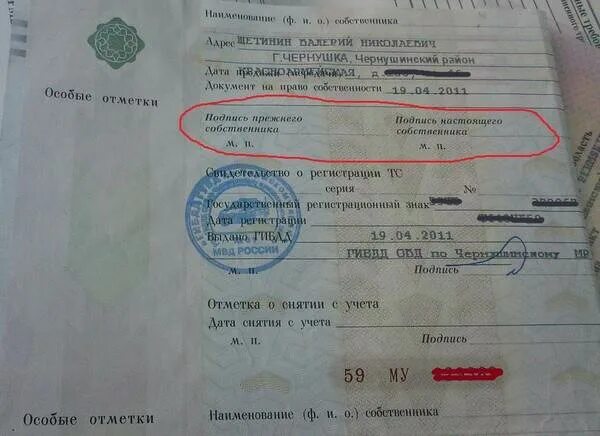 Наименование (ф. и. о.) собственника
Адрес ЩЕТИНИН ВАЛЕРИЙ НИКОЛАЕВИЧ
Г.ЧЕРНУШКА, Чернушинский район
Дата продажи (передачи)
КРАСНОАРМЕЙСКАЯ
Документ на право собственности 19.04.2011
Особые отметки
Подпись прежнего собственника
Подпись настоящего собственника
М. П.
М. П.
Свидетельство о регистрации ТС
серия №
Государственный регистрационный знак
Дата регистрации
Выдано ГИБДД 19.04.2011
ГИБДД ОВД по Чернушинскому МР
М. П. Подпись
МВД РОССИИ
Отметка о снятии с учета
Дата снятия с учета
М. П. Подпись
59 МУ
Особые отметки
Наименование (ф. и. о.) собственника